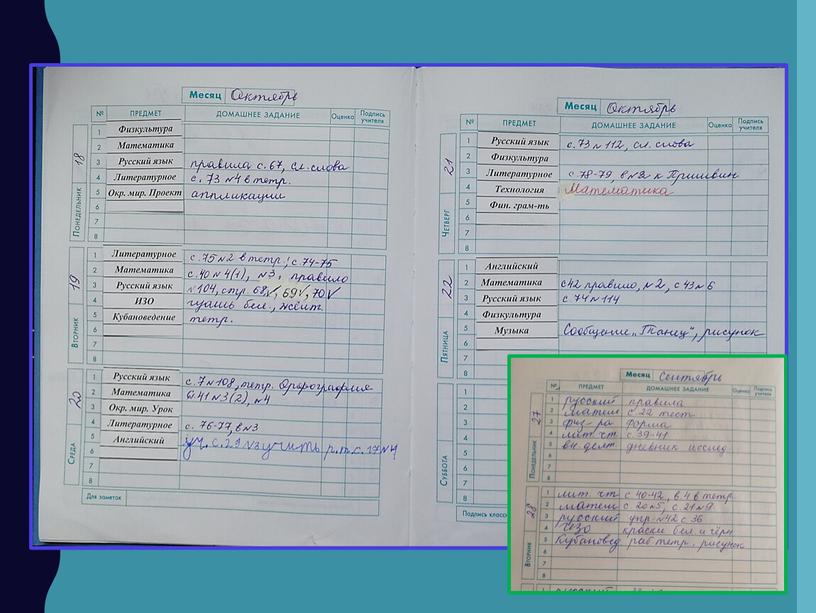 Месяц Октябрь
№ ПРЕДМЕТ ДОМАШНЕЕ ЗАДАНИЕ Оценка Подпись учителя
ПОНЕДЕЛЬНИК 18
1 Физкультура
2 Математика
3 Русский язык правила с. 67, сл. слова
4 Литературное с. 73 №4 в тетр.
5 Окр. мир. Проект аппликации
6
7
8
ВТОРНИК 19
1 Литературное с. 75 №2 в тетр.; с 74-75
2 Математика с. 40 №4(1), №3, правило
3 Русский язык №104, стр. 68✓, 69✓, 70✓
4 ИЗО гуашь бел., желт.
5 Кубановедение тетр.
6
7
8
СРЕДА 20
1 Русский язык с. 7 №108, тетр. Орфография
2 Математика с. 41 №3(2), №4
3 Окр. мир. Урок
4 Литературное с. 76-77, в №3
5 Английский уч. с. 29 №3 учить р.т. с. 17 №4
6
7
8
Для заметок
Месяц Октябрь
№ ПРЕДМЕТ ДОМАШНЕЕ ЗАДАНИЕ Оценка Подпись учителя
ЧЕТВЕРГ 21
1 Русский язык с. 73 №112, сл. слова
2 Физкультура
3 Литературное с 78-79, в №2 к Пришвин
4 Технология Математика
5 Фин. грам-ть
6
7
8
ПЯТНИЦА 22
1 Английский
2 Математика с 42 правило, №2, с 43 №6
3 Русский язык с. 74 №114
4 Физкультура
5 Музыка Сообщение „Танец", рисунок
6
7
СУББОТА
1
2
3
4
5
6
7
8
Подпись класс
Месяц Сентябрь
№ ПРЕДМЕТ ДОМАШНЕЕ ЗАДАНИЕ Оценка Подпись учителя
ПОНЕДЕЛЬНИК 27
1 русский правила
2 матем с 22 тест
3 физ-ра форма
4 лит чт с 39-41
5 вн деят дневник исслед
6
7
8
ВТОРНИК 28
1 лит. чт с 40-42, в. 4 в тетр
2 матем с 20 №5, с 21 №9
3 русский упр №42 с 36
4 Изо краски бел. и чёрн
5 Кубановед раб тетр. рисунок
6
7
8
1